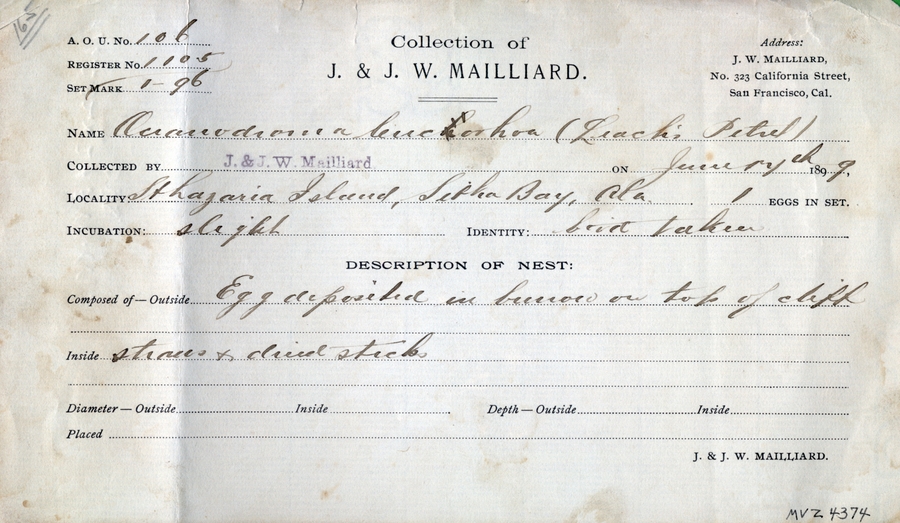 165
A. O. U. No. 106
REGISTER No. 1105
SET MARK 1-96
Collection of
J. & J. W. MAILLIARD.
Address:
J. W. MAILLIARD,
No. 323 California Street,
San Francisco, Cal.
NAME Oceanodroma leucorhoa (Leach's Petrel)
COLLECTED BY J. & J. W. Mailliard ON June 17th 1899,
LOCALITY St Lazaria Island, Sitka Bay, Ala. 1 EGGS IN SET.
INCUBATION: slight IDENTITY: bird taken
DESCRIPTION OF NEST:
Composed of—Outside Egg deposited in burrow on top of cliff
Inside straws & dried sticks
Diameter—Outside Inside Depth—Outside Inside
Placed
J. & J. W. MAILLIARD.
MVZ 4374